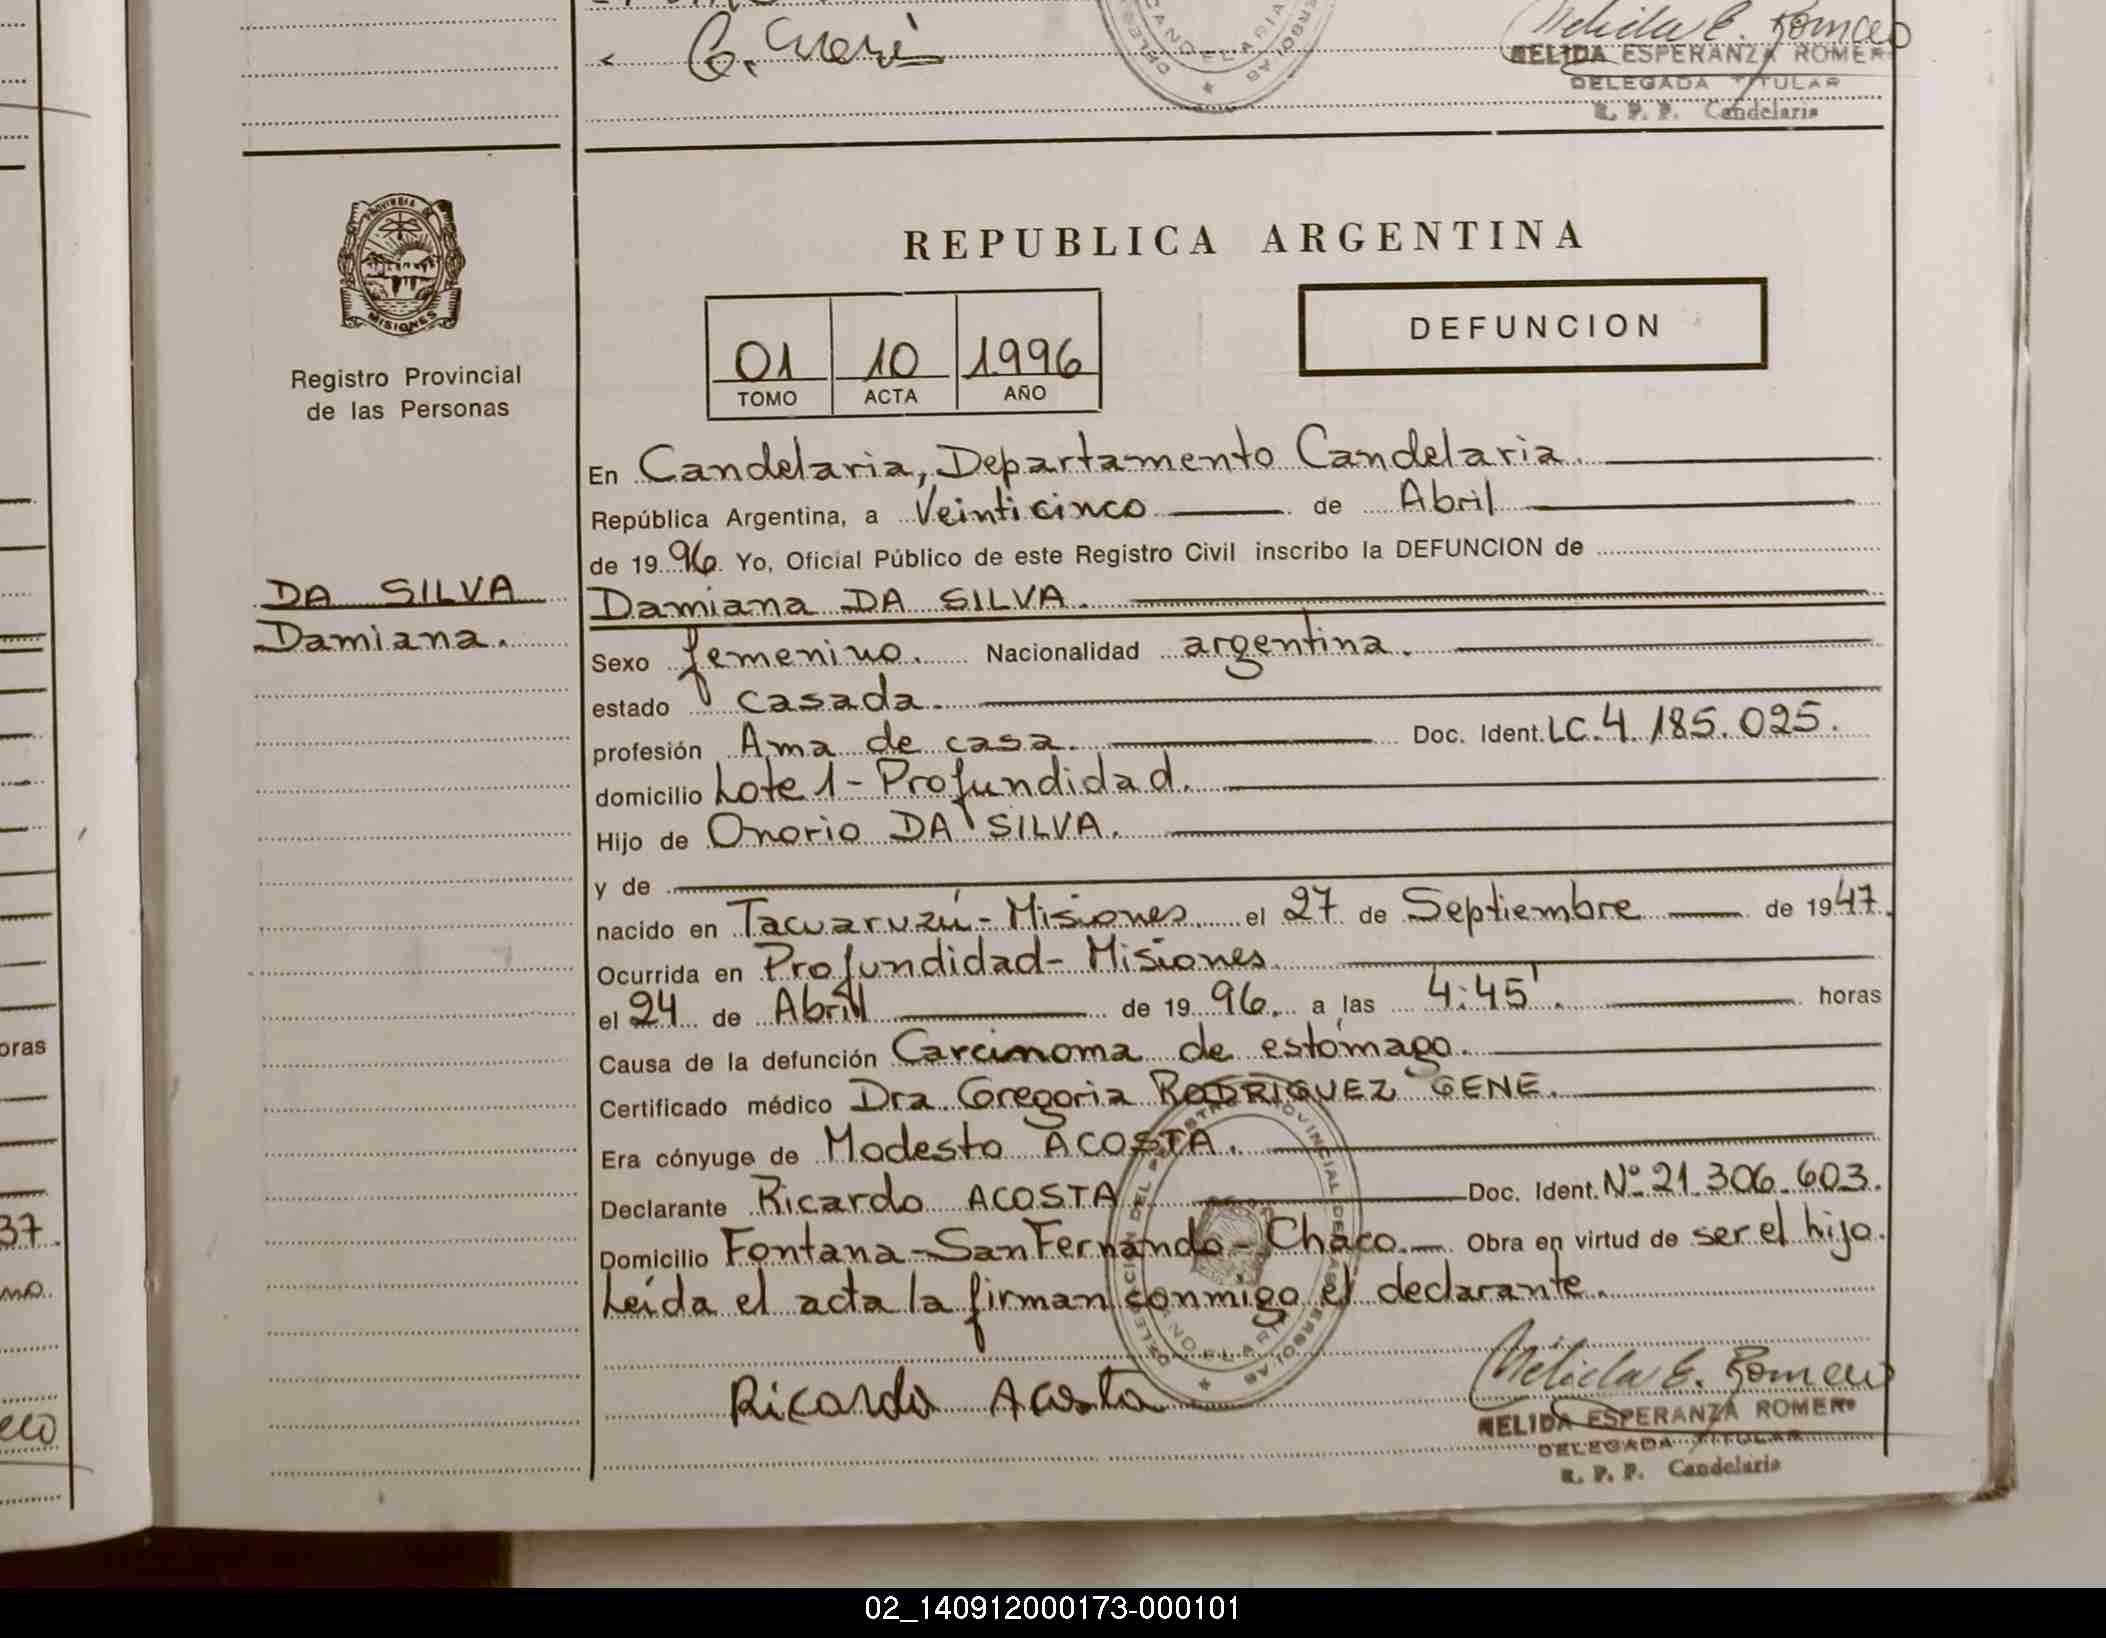 G.
NELIDA ESPERANZA ROMERO
DELEGADA TITULAR
R. P. P. Candelaria
PROVINCIA DE
MISIONES
Registro Provincial
de las Personas
REPUBLICA ARGENTINA
DEFUNCION
01 10 1996
TOMO ACTA AÑO
En Candelaria, Departamento Candelaria.
República Argentina, a Veinticinco de Abril
de 1996. Yo, Oficial Público de este Registro Civil inscribo la DEFUNCION de
DA SILVA
Damiana.
Damiana DA SILVA.
Sexo femenino. Nacionalidad argentina.
estado casada.
profesión Ama de casa. Doc. Ident. LC. 4.185.025.
domicilio Lote 1 - Profundidad.
Hijo de Onorio DA SILVA.
y de
nacido en Tacuaruzú - Misiones el 27 de Septiembre de 1947.
Ocurrida en Profundidad - Misiones
el 24 de Abril de 1996. a las 4:45'. horas
Causa de la defunción Carcinoma de estómago.
Certificado médico Dra. Gregoria RODRIGUEZ GENE.
Era cónyuge de Modesto ACOSTA.
Declarante Ricardo ACOSTA Doc. Ident. Nº 21.306.603.
Domicilio Fontana - San Fernando - Chaco. Obra en virtud de ser el hijo.
Leída el acta la firman conmigo el declarante.
Ricardo Acosta
Nelida E. Romero
NELIDA ESPERANZA ROMERO
DELEGADA TITULAR
R. P. P. Candelaria
oras
37.
02_140912000173-000101